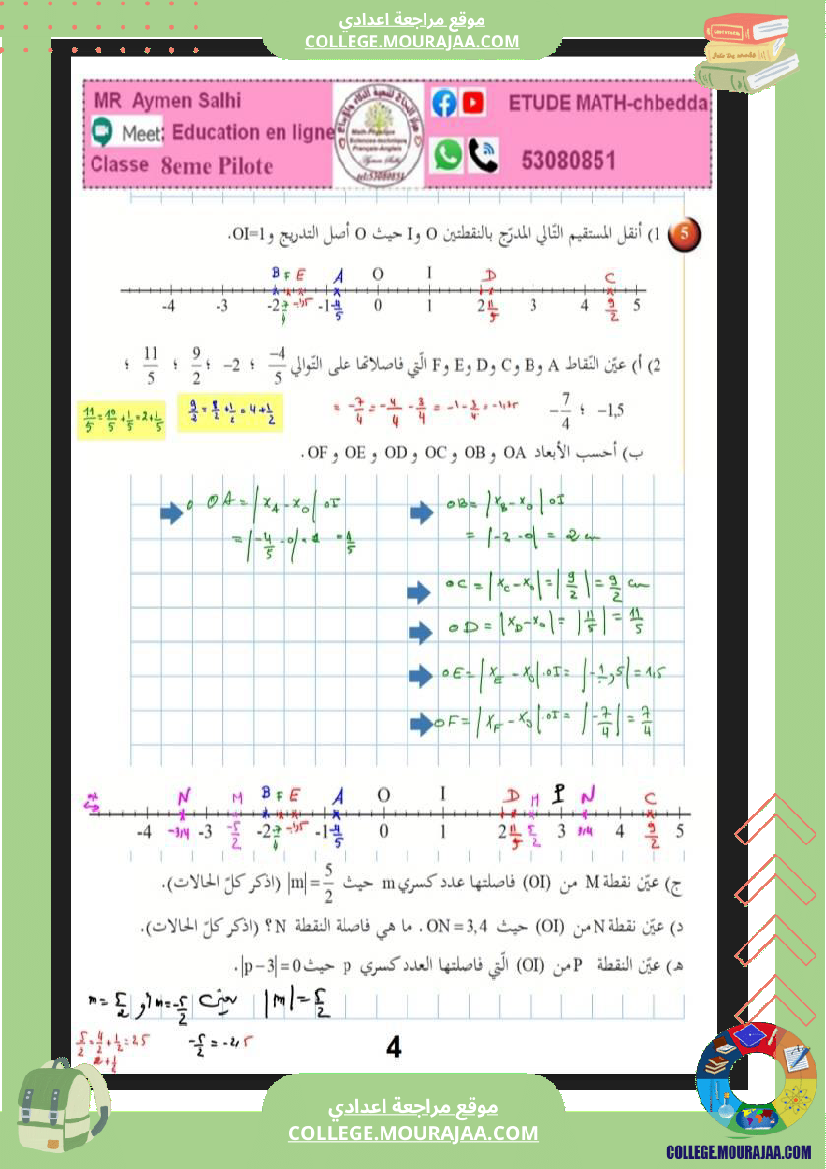 موقع مراجعة اعدادي
COLLEGE.MOURAJAA.COM
MR Aymen Salhi
Meet: Education en ligne
Classe 8eme Pilote
ETUDE MATH-chbedda
53080851
5 1) أنقل المستقيم التّالي المدرّج بالنقطتين O و I حيث O أصل التدريج و OI=1.
B F E A O I D C
-4 -3 -2 -7/4 -1,5 -1 -4/5 0 1 2 11/5 3 4 9/2 5
2) أ) عيّن النّقاط A و B و C و D و E و F الّتي فاصلاتها على التّوالي -4/5 ؛ -2 ؛ 9/2 ؛ 11/5 ؛
-1,5 ؛ -7/4
= -7/4 = -4/4 - 3/4 = -1 - 3/4 = -1,75
9/2 = 8/2 + 1/2 = 4 + 1/2
11/5 = 10/5 + 1/5 = 2 + 1/5
ب) أحسب الأبعاد OA و OB و OC و OD و OE و OF .
OA = |xA - xO| OI
= |-4/5 - 0| × 1 = 4/5
OB = |xB - xO| OI
= |-2 - 0| = 2 cm
OC = |xC - xO| = |9/2| = 9/2 cm
OD = |xD - xO| = |11/5| = 11/5
OE = |xE - xO| . OI = |-1,5| = 1,5
OF = |xF - xO| . OI = |-7/4| = 7/4
N M B F E A O I D M P N C
-4 -3,4 -3 -5/2 -2 -7/4 -1,5 -1 -4/5 0 1 2 11/5 5/2 3 3,4 4 9/2 5
ج) عيّن نقطة M من (OI) فاصلتها عدد كسري m حيث |m| = 5/2 (اذكر كلّ الحالات).
د) عيّن نقطة N من (OI) حيث ON = 3,4 . ما هي فاصلة النقطة N ؟ (اذكر كلّ الحالات).
هـ) عيّن النقطة P من (OI) الّتي فاصلتها العدد كسري p حيث |p-3| = 0 .
|m| = 5/2 يعني m = -5/2 أو m = 5/2
5/2 = 4/2 + 1/2 = 2,5
2 + 1/2
-5/2 = -2,5
4
موقع مراجعة اعدادي
COLLEGE.MOURAJAA.COM
COLLEGE.MOURAJAA.COM